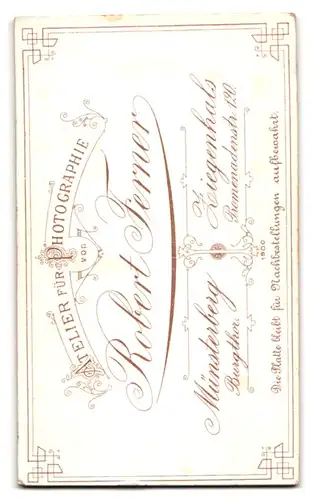 ATELIER FÜR PHOTOGRAPHIE
VON
Robert Ferner
Münsterberg
Burgthor.
Ziegenhals
Promenadenstr. 120.
1900
Die Platte bleibt für Nachbestellungen aufbewahrt.